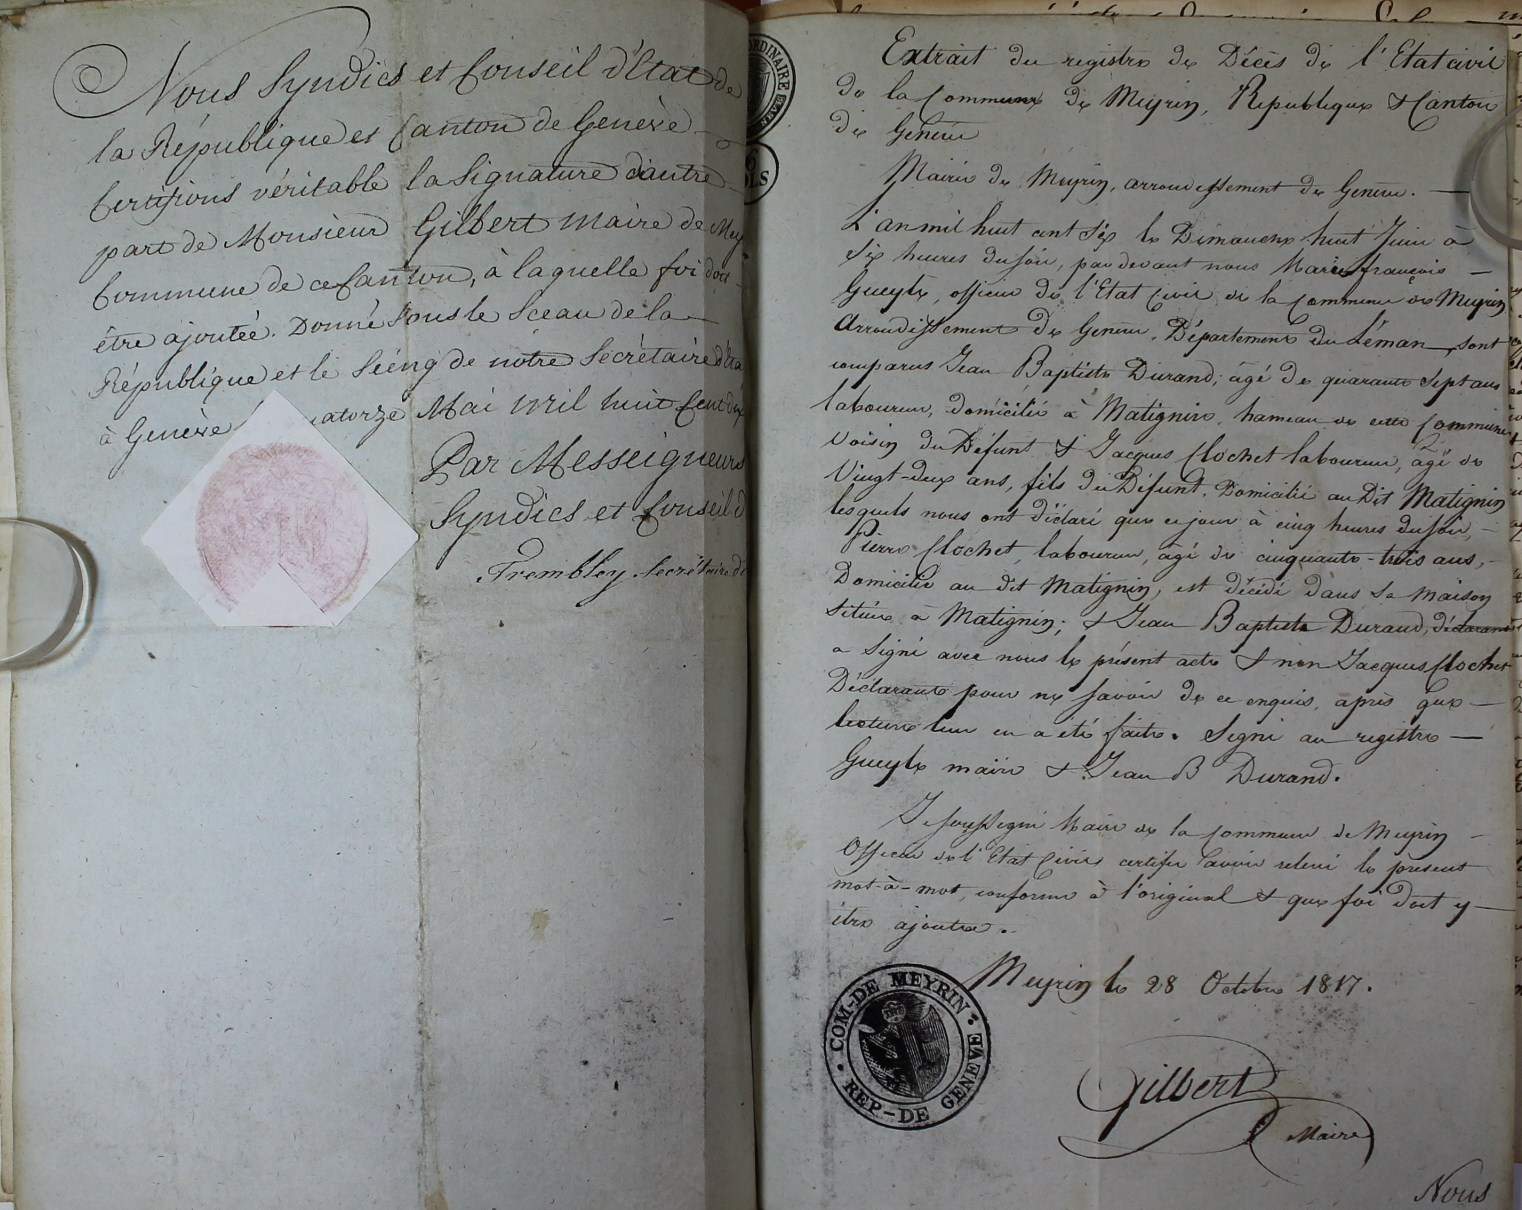 Nous Syndics et Conseil d'Etat de
la République et Canton de Genève
Certifions véritable la Signature d'autre
part de Monsieur Gilbert Maire de Mey
Commune de ce Canton, à laquelle foi doit
être ajoutée. Donné sous le Sceau de la
République et le Séing de notre Secrétaire d'Eta
à Genève atorze Mai mil huit Cent dix
Par Messeigneurs
Syndics et Conseil d
Trembley Secrétaire d'
ORDINAIRE
OLS
Extrait du registre de Décès de l'Etat civil
de la Commune de Meyrin, Republique & Canton
de Genève
Mairie de Meyrin, arrondissement de Genève.
L'an mil huit cent six le Dimanche huit Juin à
six heures du soir, pardevant nous Marie françois
Gueyte, officier de l'Etat Civil de la Commune de Meyrin
Arrondissement de Genève, Département du Léman, sont
comparus Jean Baptiste Durand, âgé de quarante sept ans
laboureur, domicilié à Matignin, hameau de cette Commune
Voisin du Défunt & Jacques Clochet laboureur, âgé de
Vingt-deux ans, fils du Défunt, Domicilié au Dit Matignin
lesquels nous ont déclaré que ce jour à cinq heures du soir,
Pierre Clochet, laboureur, âgé de cinquante-trois ans,
Domicilié au dit Matignin, est décédé dans sa maison
située à Matignin; & Jean Baptiste Durand, déclarant
a signé avec nous le présent acte & non Jacques Clochet
Déclarant pour ne savoir de ce enquis, après que
lecture leur en a été faite. Signé au registre
Gueyte maire & Jean B Durand.
Je soussigné Maire de la Commune de Meyrin
Officier de l'Etat Civil certifie l'avoir relevé le present
mot-à-mot, conforme à l'original & que foi doit y
être ajoutée.
Meyrin le 28 Octobre 1817.
COM-DE MEYRIN
REP-DE GENEVE
Gilbert
Maire
Nous